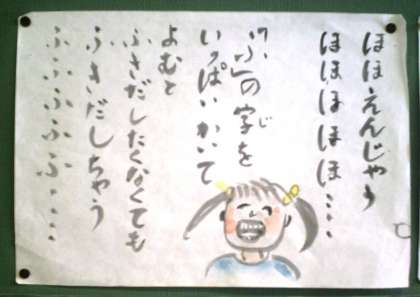 ほほえんじゃう
ほほほほほ‥‥
「ふ」の字を
じ
いっぱいかいて
よむと
ふきだしたくなくても
ふきだしちゃう
ふふふふふ‥‥